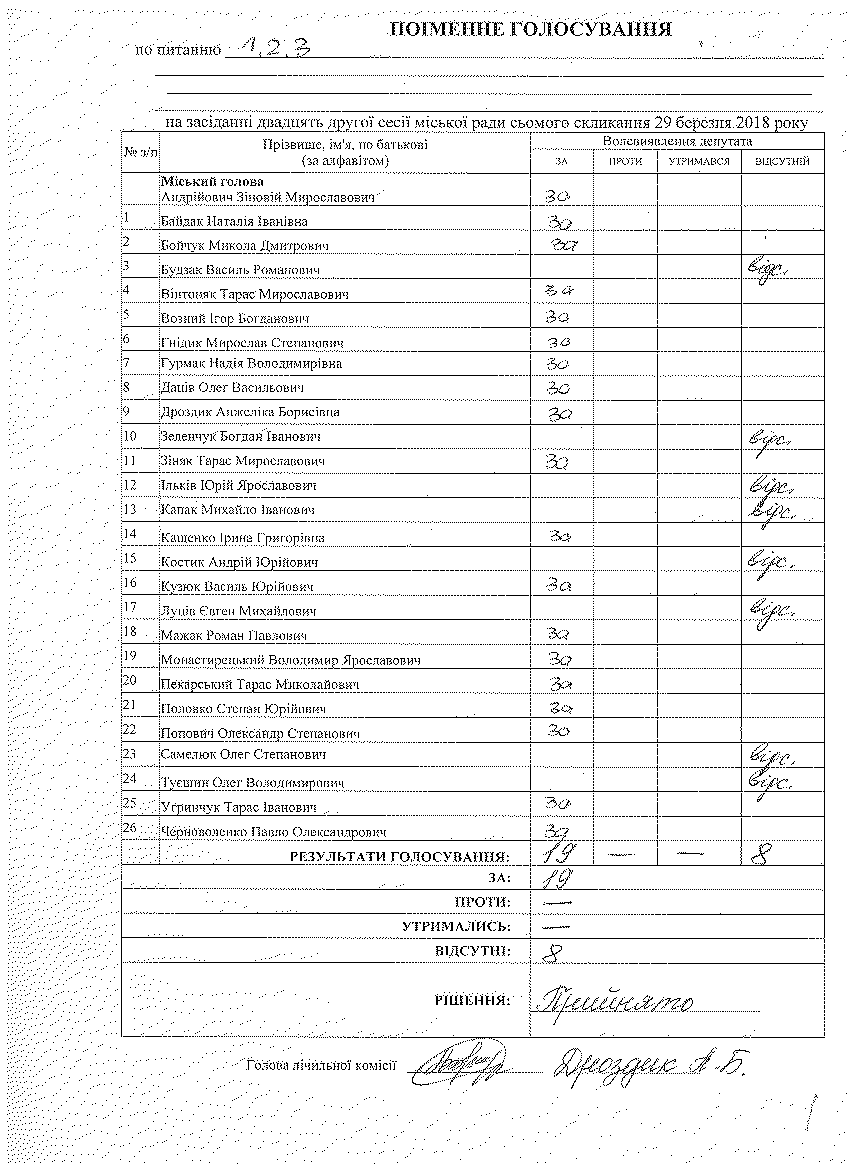 ПОІМЕННЕ ГОЛОСУВАННЯ
по питанню 1,2,3
на засіданні двадцять другої сесії міської ради сьомого скликання 29 березня 2018 року
№ з/п Прізвище, ім'я, по батькові (за алфавітом) Волевиявлення депутата
ЗА ПРОТИ УТРИМАВСЯ ВІДСУТНІЙ
Міський голова
Андрійович Зіновій Мирославович за
1 Байдак Наталія Іванівна за
2 Бойчук Микола Дмитрович за
3 Будзак Василь Романович відс.
4 Вінтоняк Тарас Мирославович за
5 Возний Ігор Богданович за
6 Гнідик Мирослав Степанович за
7 Гурмак Надія Володимирівна за
8 Даців Олег Васильович за
9 Дроздик Анжеліка Борисівна за
10 Зеленчук Богдан Іванович відс.
11 Зіняк Тарас Мирославович за
12 Ільків Юрій Ярославович відс.
13 Капак Михайло Іванович відс.
14 Кащенко Ірина Григорівна за
15 Костик Андрій Юрійович відс.
16 Кузюк Василь Юрійович за
17 Луців Євген Михайлович відс.
18 Мажак Роман Павлович за
19 Монастирецький Володимир Ярославович за
20 Пекарський Тарас Миколайович за
21 Половко Степан Юрійович за
22 Попович Олександр Степанович за
23 Самелюк Олег Степанович відс.
24 Туєшин Олег Володимирович відс.
25 Угринчук Тарас Іванович за
26 Черноволенко Павло Олександрович за
РЕЗУЛЬТАТИ ГОЛОСУВАННЯ: 19 — — 8
ЗА: 19
ПРОТИ: —
УТРИМАЛИСЬ: —
ВІДСУТНІ: 8
РІШЕННЯ: Прийнято
Голова лічильної комісії Дроздик А.Б.